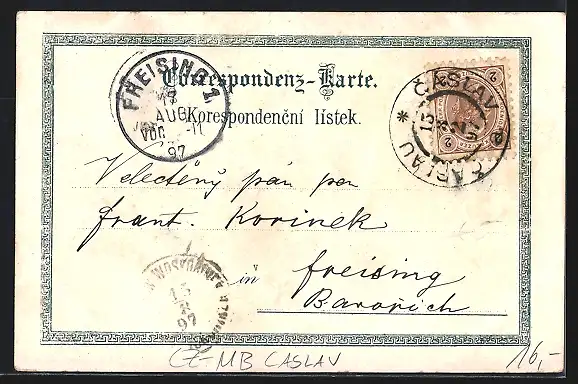 Correspondenz-Karte.
Korespondenční lístek.
FREISING 1
17
AUG
VOR -11
97
ČÁSLAV
* ČASLAU
2
2
Velectěný pán pan
frant. Kovinek
in freising
Bavořích
15
8
97
CZ-MB CASLAV
16,-